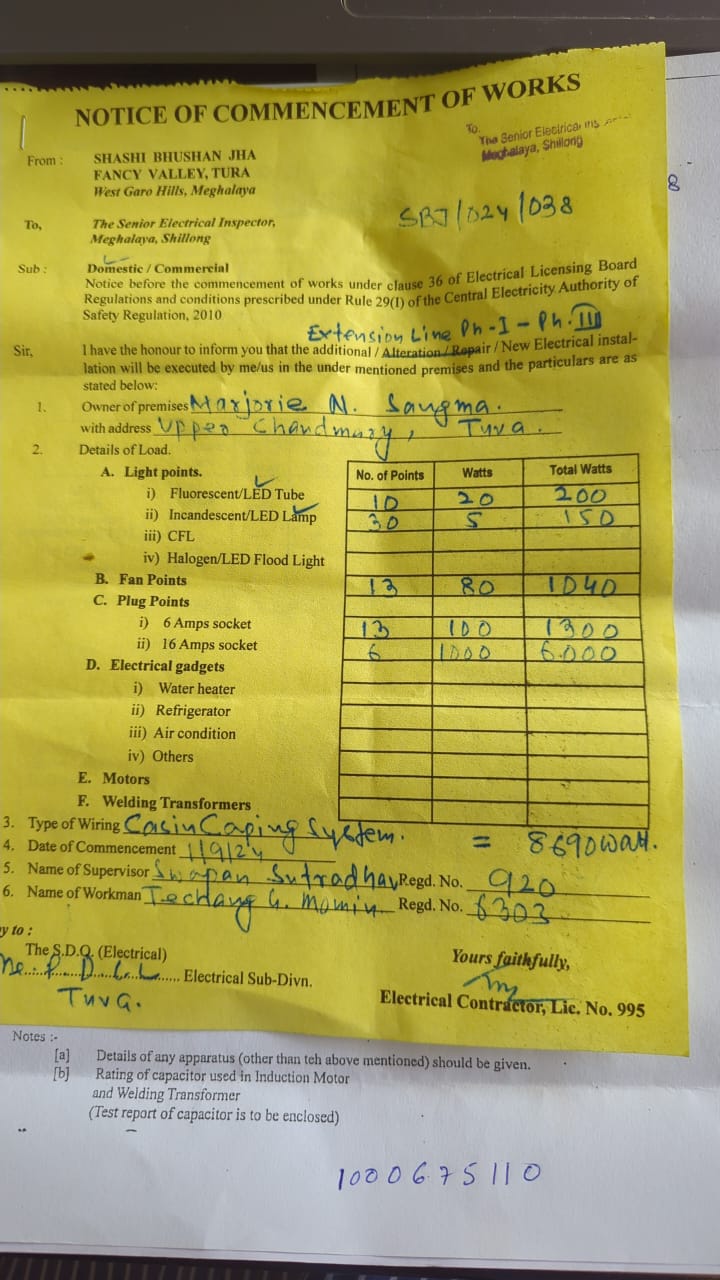 NOTICE OF COMMENCEMENT OF WORKS
To.
The Senior Electrical
Meghalaya, Shillong
From : SHASHI BHUSHAN JHA
FANCY VALLEY, TURA
West Garo Hills, Meghalaya
8
SBJ/024/038
To, The Senior Electrical Inspector,
Meghalaya, Shillong
Sub : Domestic / Commercial
Notice before the commencement of works under clause 36 of Electrical Licensing Board
Regulations and conditions prescribed under Rule 29(I) of the Central Electricity Authority of
Safety Regulation, 2010
Extension Line Ph-I - Ph.III
Sir, I have the honour to inform you that the additional / Alteration / Repair / New Electrical instal-
lation will be executed by me/us in the under mentioned premises and the particulars are as
stated below:
1. Owner of premises Marjorie N. Sangma.
with address Upper Chandmary, Tura.
2. Details of Load.
No. of Points Watts Total Watts
A. Light points.
i) Fluorescent/LED Tube 10 20 200
ii) Incandescent/LED Lamp 30 5 150
iii) CFL
iv) Halogen/LED Flood Light
B. Fan Points 13 80 1040
C. Plug Points
i) 6 Amps socket 13 100 1300
ii) 16 Amps socket 6 1000 6.000
D. Electrical gadgets
i) Water heater
ii) Refrigerator
iii) Air condition
iv) Others
E. Motors
F. Welding Transformers
3. Type of Wiring Casin Caping System. = 8690 watt.
4. Date of Commencement 1/9/24
5. Name of Supervisor Swapan Sutradhar Regd. No. 920
6. Name of Workman Techang G. Momin Regd. No. 6303
y to :
The S.D.O. (Electrical) Yours faithfully,
Electrical Sub-Divn.
Tura.
Electrical Contractor, Lic. No. 995
Notes :-
[a] Details of any apparatus (other than teh above mentioned) should be given.
[b] Rating of capacitor used in Induction Motor
and Welding Transformer
(Test report of capacitor is to be enclosed)
1000675110